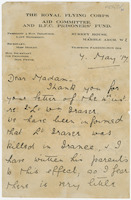 THE ROYAL FLYING CORPS
AID COMMITTEE
AND R.F.C. PRISONERS' FUND.
SURREY HOUSE,
MARBLE ARCH, W.
7. May 17
Dear Madam,
Thank you for
your letter of the
Lt Fraser
We have been informed
that Lt Fraser was
killed in France. I
have written his parents
to this effect, so I fear
there is very little